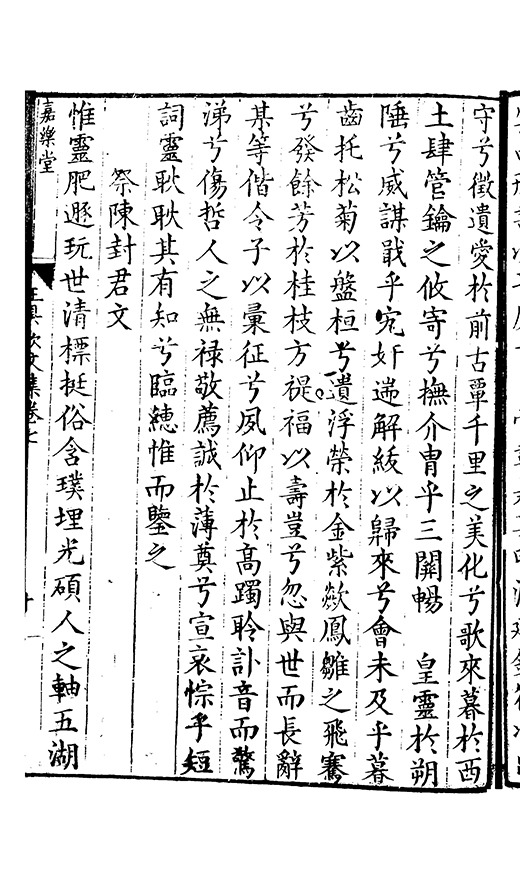 守兮徵遺愛於前古覃千里之美化兮歌來暮於西
土肆管鑰之攸寄兮撫介冑乎三關暢　皇靈於朔
陲兮威謀戢乎宄奸遄解綬以歸來兮會未及乎暮
齒托松菊以盤桓兮遺浮榮於金紫歘鳳雛之飛騫
兮發餘芳於桂枝方禔福以壽豈兮忽與世而長辭
某等偕令子以彚征兮夙仰止於高躅聆訃音而驚
涕兮傷哲人之無祿敬薦誠於薄奠兮宣哀悰乎短
詞靈耿耿其有知兮臨繐惟而鑒之
祭陳封君文
惟靈肥遯玩世清標挺俗含璞埋光碩人之軸五湖
嘉樂堂
文集卷七
十